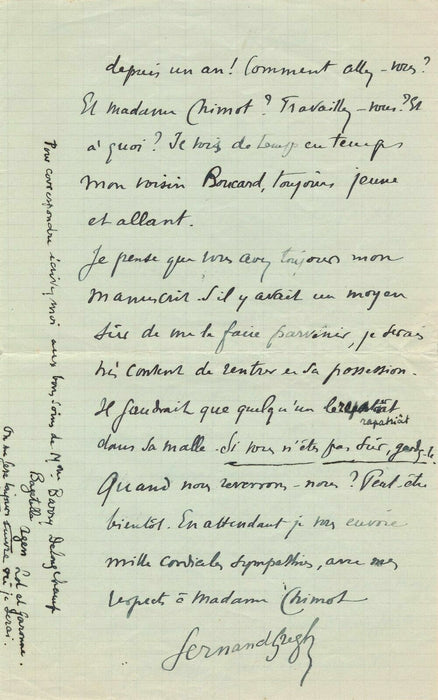 depuis un an! Comment allez-vous?
Et madame Chimot? Travaillez-vous? Et
à quoi? Je vois de temps en temps
mon voisin Boucard, toujours jeune
et allant.
Je pense que vous avez toujours mon
manuscrit. S'il y avait un moyen
sûr de me le faire parvenir, je serais
très content de rentrer en sa possession.
Il faudrait que quelqu'un le
rapatriât
dans sa malle. Si vous n'êtes pas sûr, gardez-le.
Quand nous reverrons-nous? Peut-être
bientôt. En attendant je vous envoie
mille cordiales sympathies, avec mes
respects à Madame Chimot
Fernand Gregh
Pour correspondre écrivez moi aux bons soins de Mme Barry
Bastille Agen Lot et Garonne.
On me fera toujours suivre où je serai.